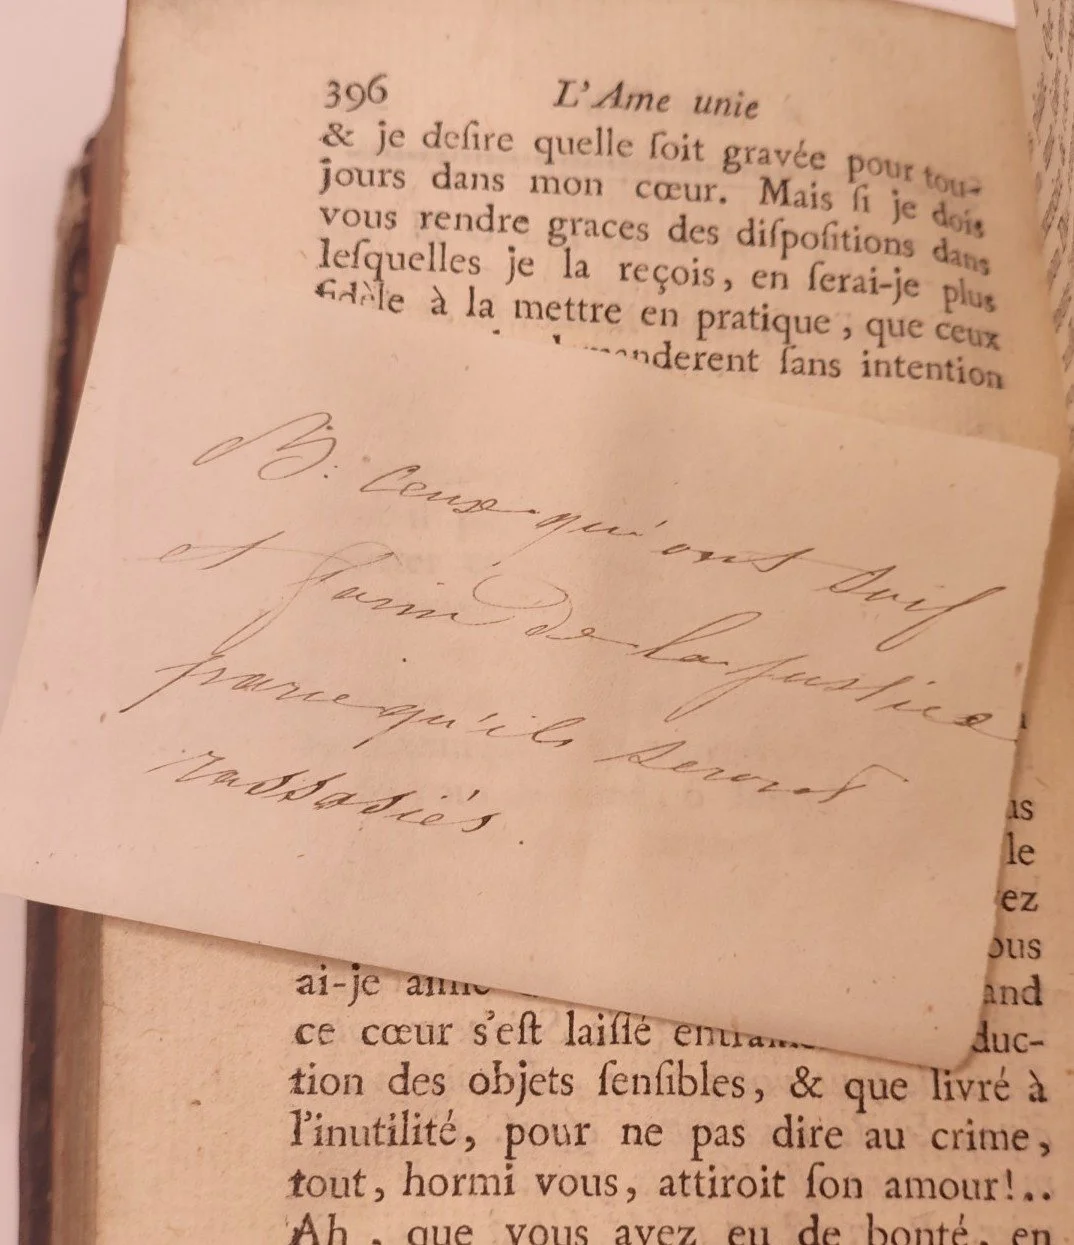 396 L'Ame unie
& je deſire quelle ſoit gravée pour tou-
jours dans mon cœur. Mais ſi je dois
vous rendre graces des diſpoſitions dans
leſquelles je la reçois, en ſerai-je plus
fidèle à la mettre en pratique, que ceux
ſans intention
B: Ceux qui ont soif
et faim de la justice
parcequ'ils seront
rassasiés.
ai-je
ce cœur s'eſt laiſſé
tion des objets ſenſibles, & que livré à
l'inutilité, pour ne pas dire au crime,
tout, hormi vous, attiroit ſon amour!..
Ah, que vous avez eu de bonté, en